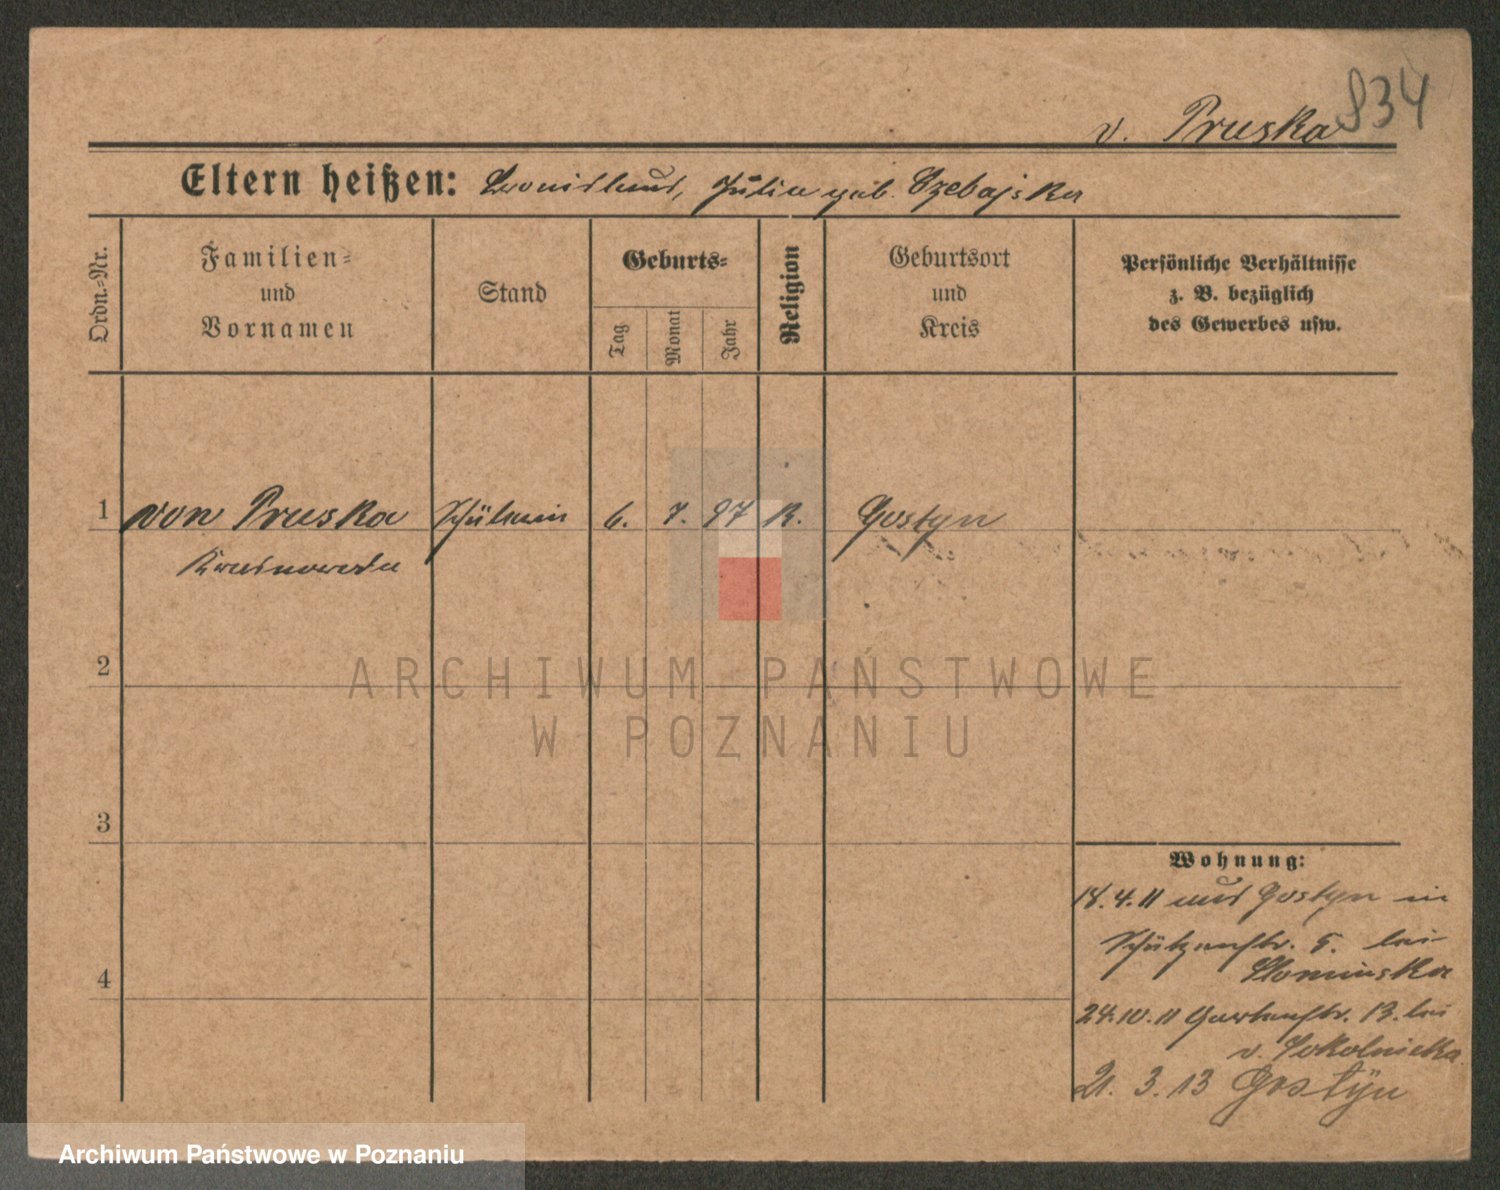 834
v. Pruska
Eltern heißen: Julia geb. Czebajska
Ordn.-Nr.
Familien-
und
Vornamen
Stand
Geburts-
Tag
Monat
Jahr
Religion
Geburtsort
und
Kreis
Persönliche Verhältnisse
z. B. bezüglich
des Gewerbes usw.
1 von Pruska Schülerin 6. 7. 97 K. Gostyn
2
ARCHIWUM PAŃSTWOWE
W POZNANIU
3
Wohnung:
18.4.11 aus Gostyn in
Schützenstr. 5. bei
Slominska
4
24.10.11 Gartenstr. 13. bei
v. Sokolnicka
21. 3. 13 Gostÿn
Archiwum Państwowe w Poznaniu